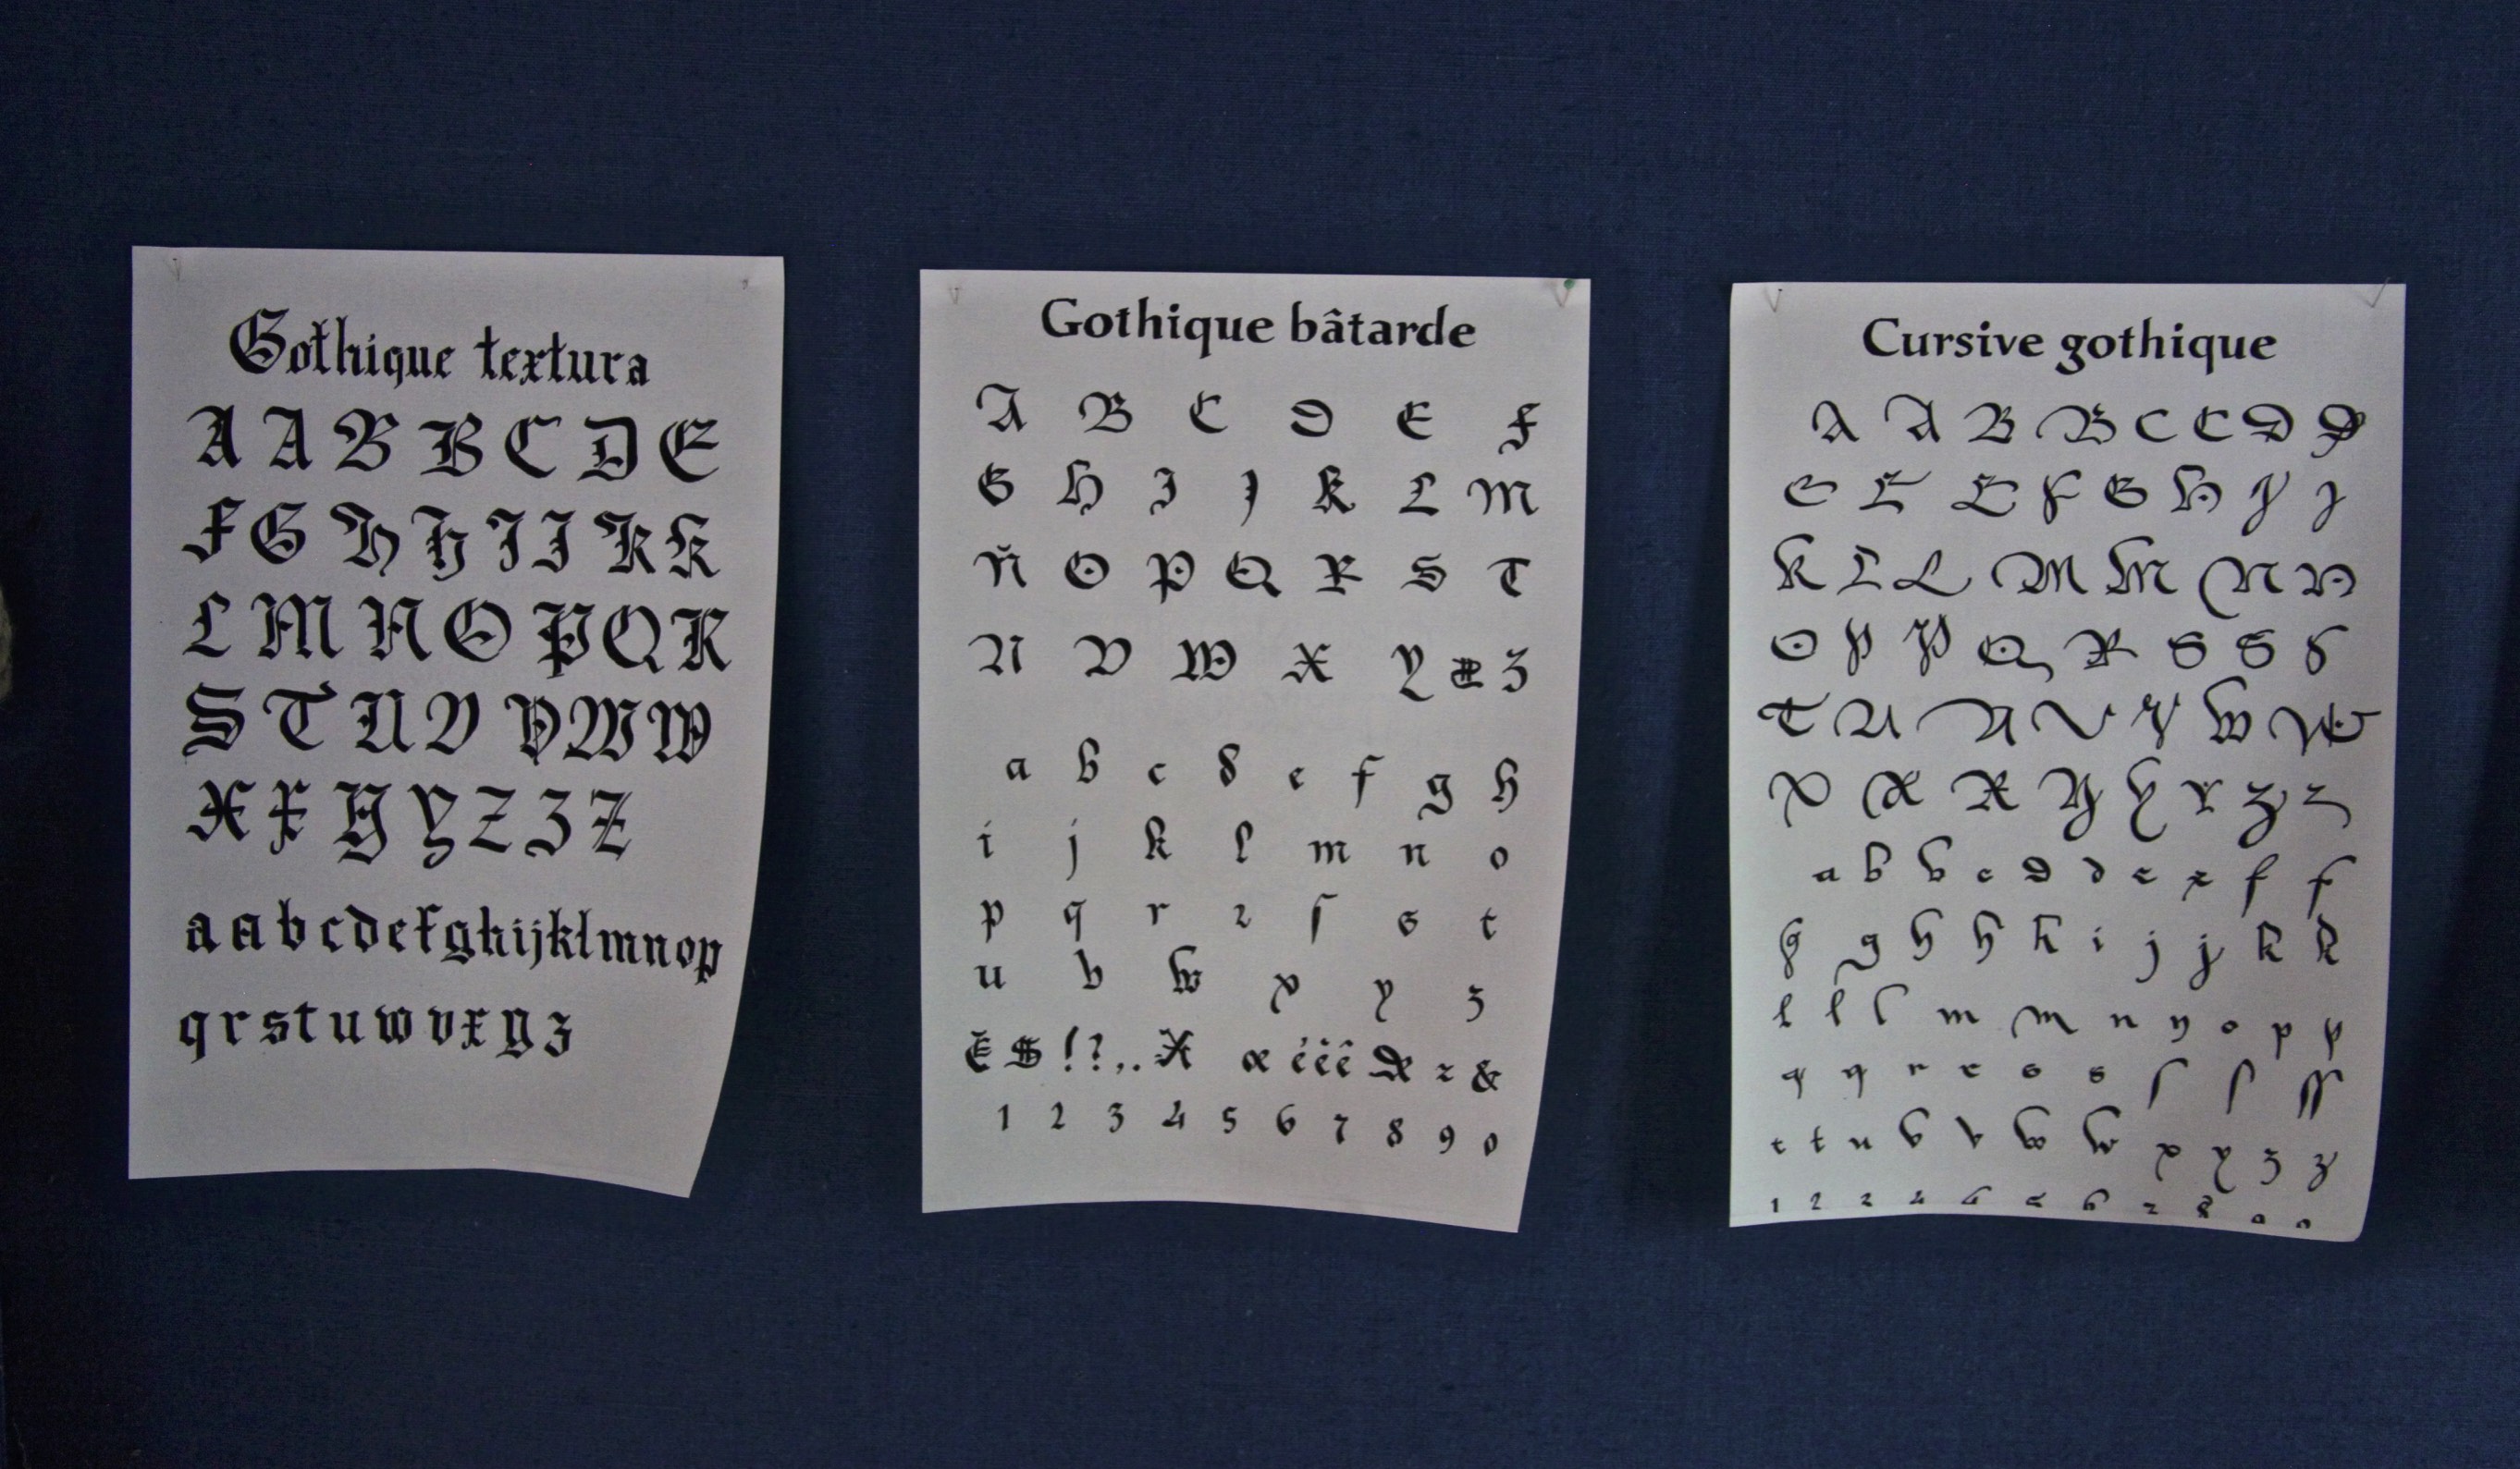 Gothique textura
A A B B C D E
F G H H I I K K
L M N O P Q R
S T U V V W W
X X Y Y Z Z Z
a a b c d e f g h i j k l m n o p
q r s t u w v x y z
Gothique bâtarde
A B C D E F
G H I J K L M
N O P Q R S T
U V W X Y Z
a b c d e f g h
i j k l m n o
p q r 2 ſ s t
u v w x y z
! ? , . X æ é è ê z &
1 2 3 4 5 6 7 8 9 0
Cursive gothique
A A B B C C D D
E E E F G H J J
K L L M M N N
O P P Q R S S S
T U U V V W W
X X X Y Y Y Z Z
a b b c d d e e f f
g g h h h i j j k k
l l l m m n n o p p
q q r r s s ſ ſ ſſ
t t u v v w w x y z z
1 2